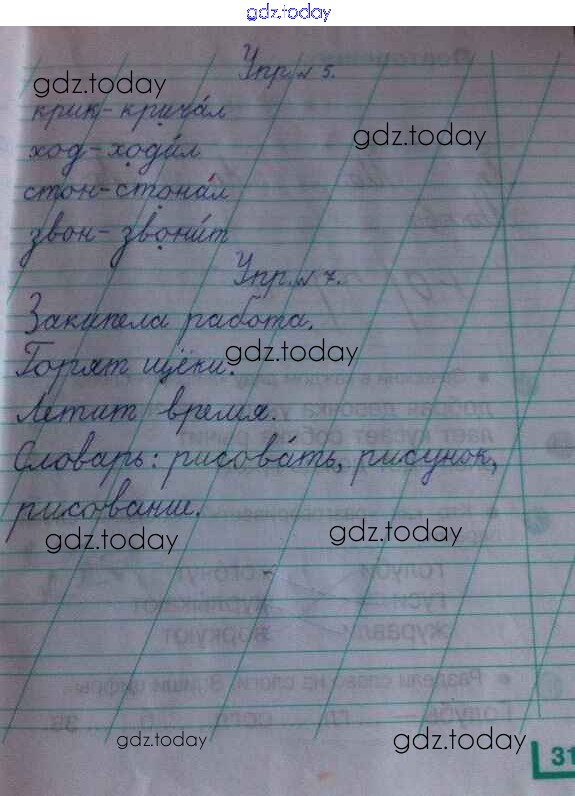 gdz.today
Упр. № 5.
gdz.today
крик - крича́л
gdz.today
ход - ходи́л
стон - стона́л
звон - звони́т
Упр. № 7.
Закипела работа.
gdz.today
Горят щёки.
Летит время.
Словарь: рисова́ть, рисунок,
рисование.
gdz.today
gdz.today
gdz.today
gdz.today
31